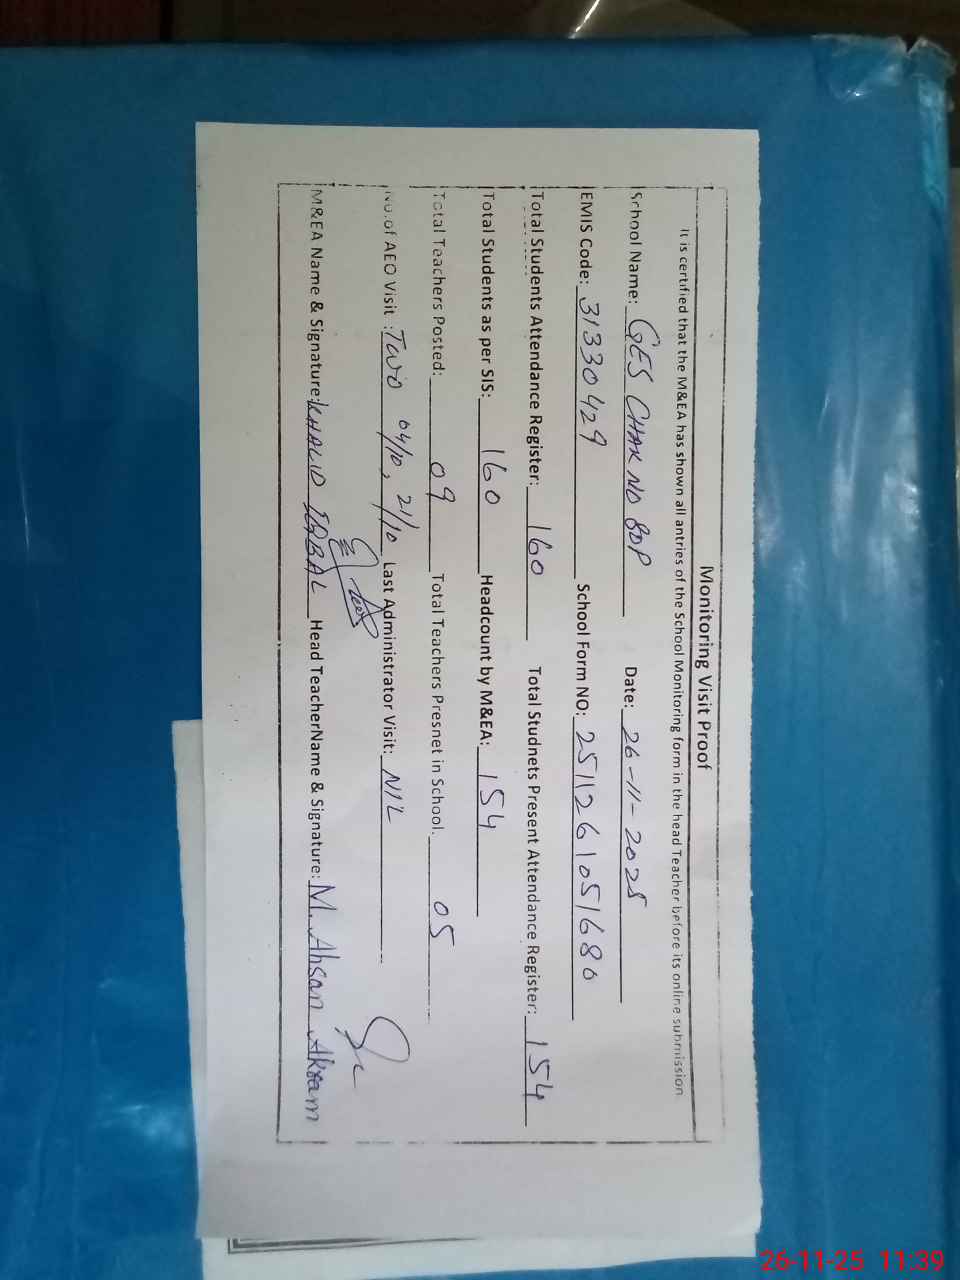 Monitoring Visit Proof
It is certified that the M&EA has shown all antries of the School Monitoring form in the head Teacher before its online submission
School Name: GES CHAK NO 80P Date: 26-11-2025
EMIS Code: 31330429 School Form NO: 2511261051680
Total Students Attendance Register: 160 Total Studnets Present Attendance Register: 154
Total Students as per SIS: 160 Headcount by M&EA: 154
Total Teachers Posted: 09 Total Teachers Presnet in School. 05
No.of AEO Visit : Two 04/10, 21/10 Last Administrator Visit: NIL
M&EA Name & Signature: KHALID IQBAL Head TeacherName & Signature: M. Ahsan Akram
26-11-25 11:39